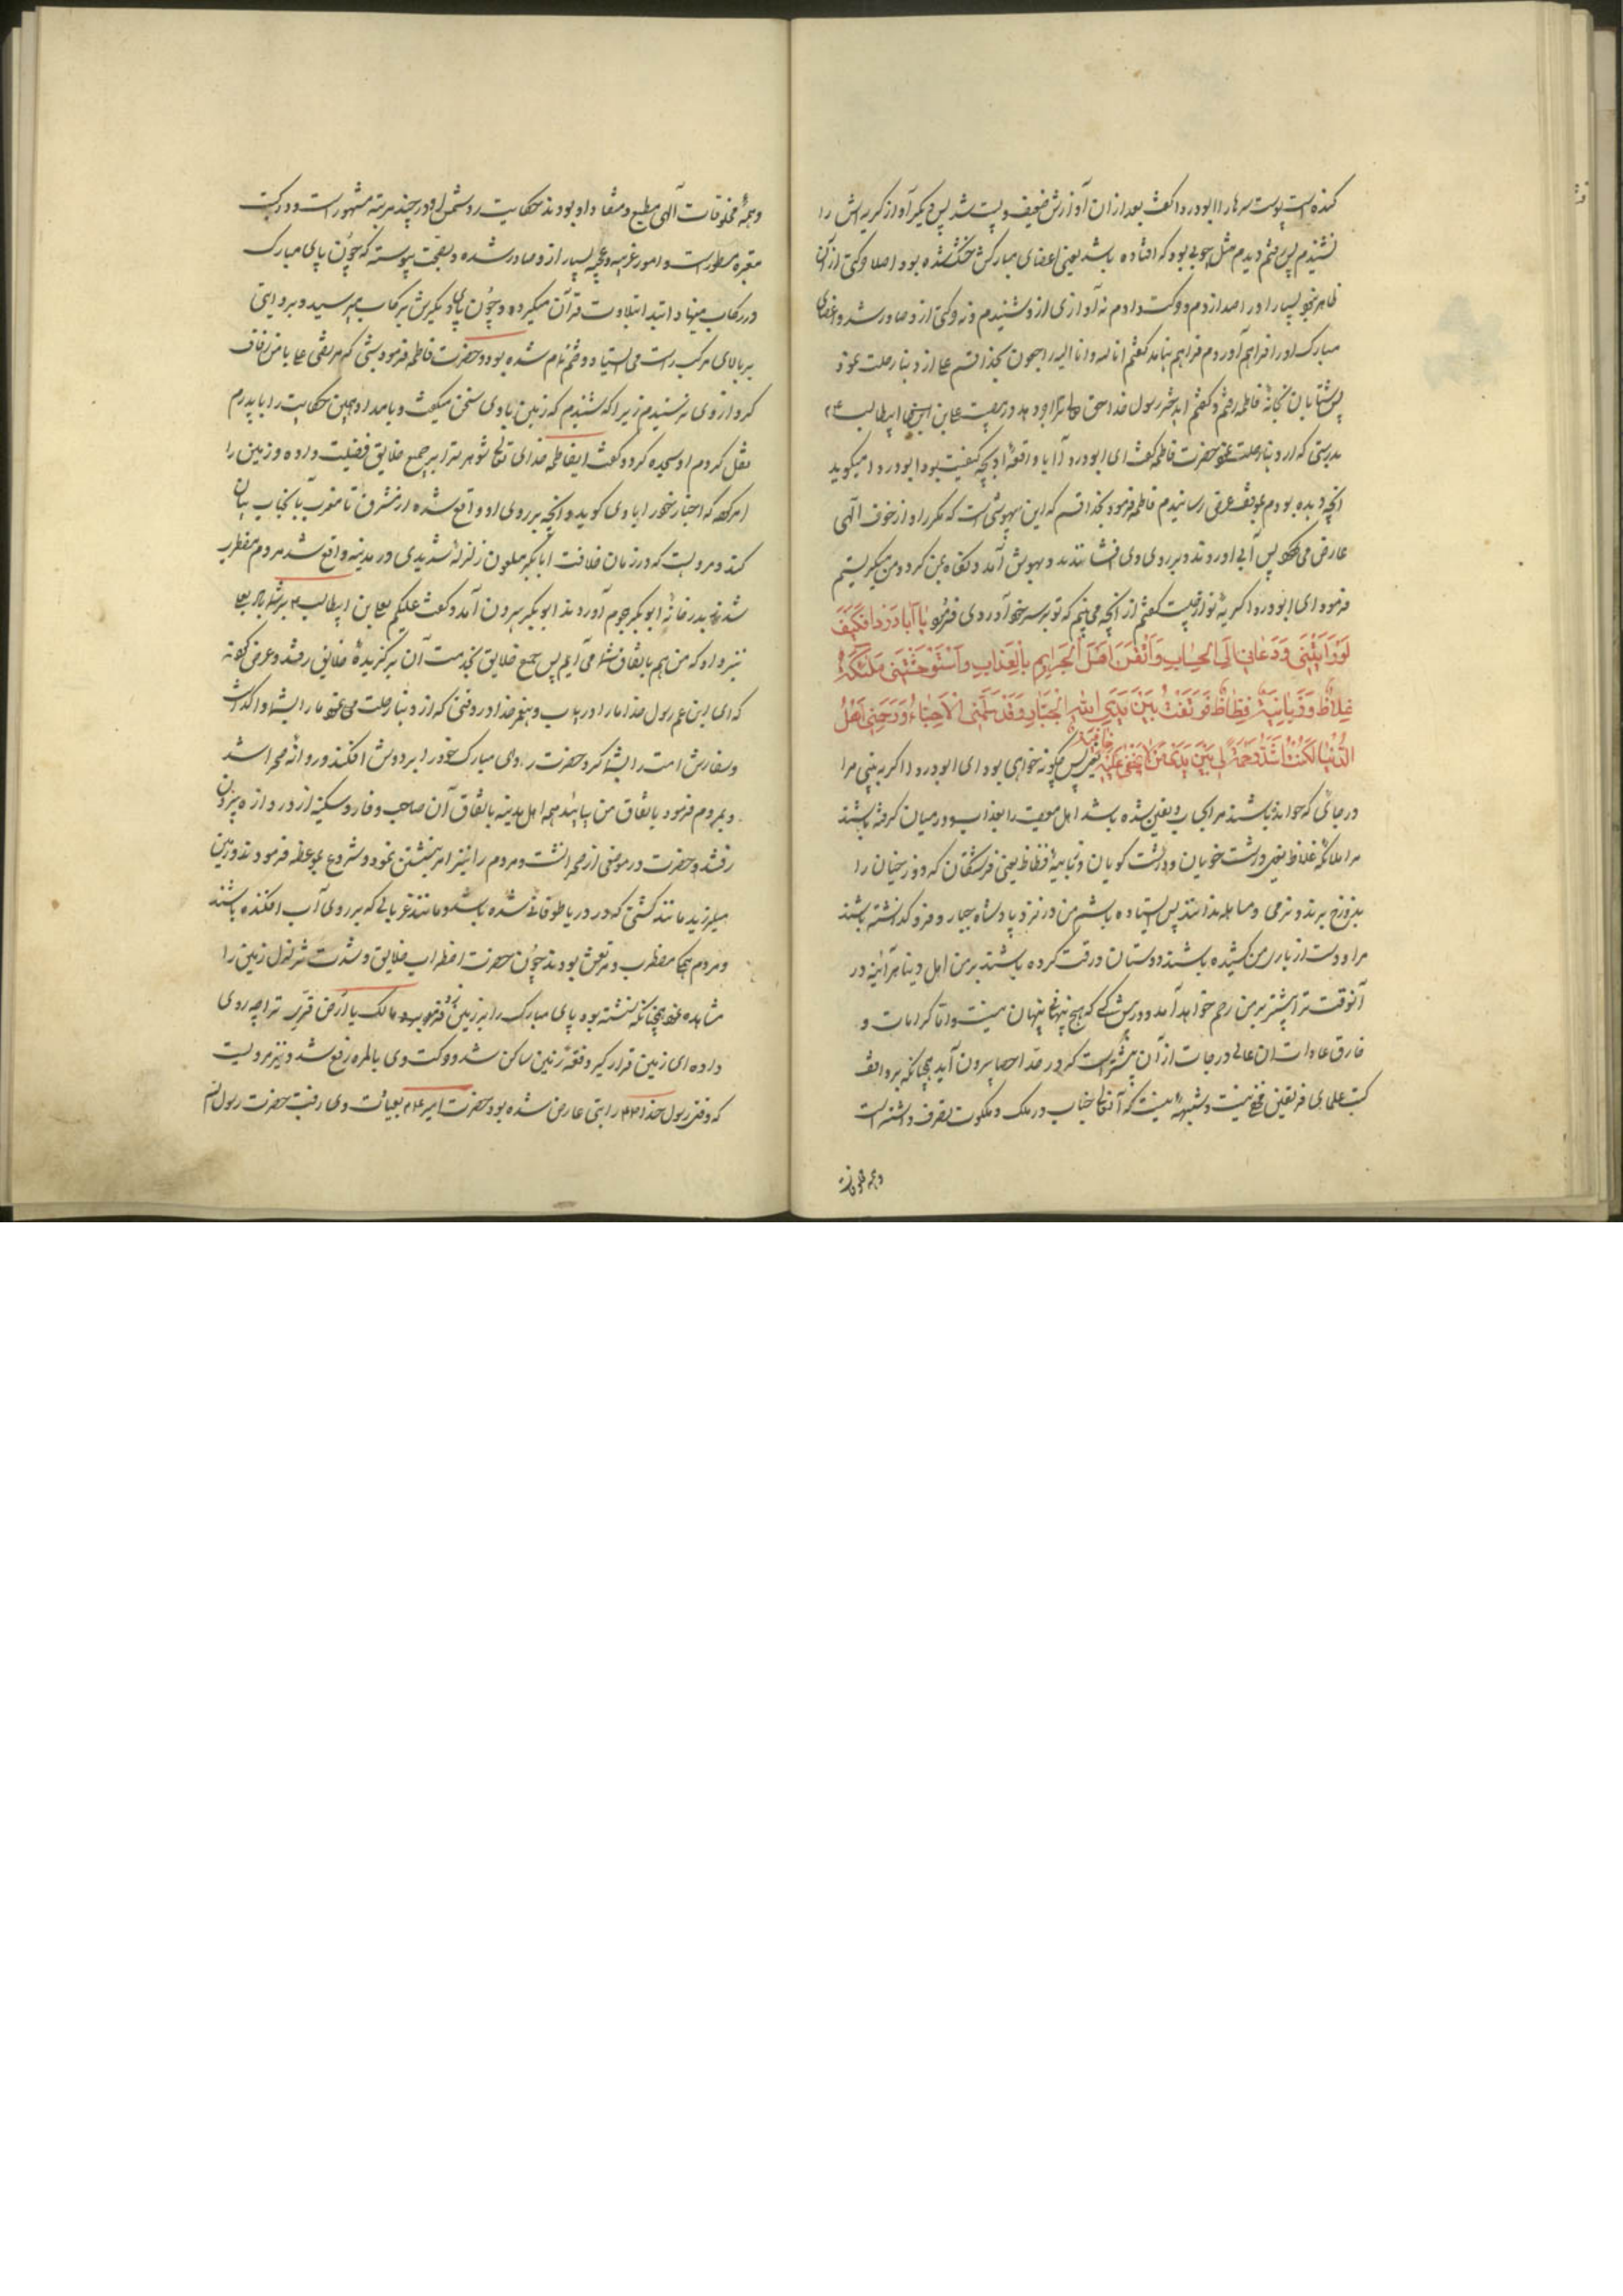 کنندهٔ پوست سرها را ابودردا گفت بعد از آن آوازش ضعیف و پست شد پس دیگر آواز گریه‌اش را
نشنیدم پس رفتم دیدم مثل چوبی بود که افتاده باشد یعنی اعضای مبارکش خشک شده بود و اصلا حرکتی از آن
ظاهر نبود بسیار او را صدا زدم و حرکت دادم نه آوازی ازو شنیدم و نه حرکتی ازو صادر شد و اعضای
مبارک او را فراهم آوردم فراهم نیامد گفتم انا لله و انا الیه راجعون بخدا قسم علی از دنیا رحلت نمود
پس شتابان بخانهٔ فاطمه رفتم و گفتم ای دختر رسول خدا حق تعالی ترا اجر دهد در مصیبت علی بن ابیطالب
بدرستی که از دنیا رحلت نمود حضرت فاطمه گفت ای ابودردا آیا واقعهٔ او بچه کیفیت بود ابودردا میگوید
آنچه دیده بودم بموقف عرض رسانیدم فاطمه فرمود بخدا قسم که این بیهوشی است که مکرر او را از خوف الهی
عارض می‌شود پس آبی آوردند و بر روی وی افشاندند و بهوش آمد و نگاه بمن کرد و من میگریستم
فرمود ای ابودردا گریهٔ تو از چیست گفتم از آنچه می‌بینم که تو بر سر خود آوردی فرمود یا اَبا دَرداء فَکَیفَ
لَو رَاَیتَنی وَ دُعانی اِلَی الحِسابِ وَ اَیقَنَ اَهلُ الجَرایِمِ بِالعَذابِ وَ استَوحَشَتنی مَلئِکَةٌ
غِلاظٌ وَ زَبانِیَةٌ فِظاظٌ فَوَقَفتُ بَینَ یَدَیِ اللهِ الجَبّارِ وَ قَد سَلَمَنی الاَحِبّاءُ وَ رَحِمَنی اَهلُ
الدُّنیا لَکُنتَ اَشَدَّ رَحمَةً لی بَینَ یَدَی مَن لا یَخفی عَلَیهِ خافِیَةٌ یعنی پس چگونه خواهی بود ای ابودردا اگر به بینی مرا
در جائی که خوانده باشند مرا بحساب و یقین شده باشد اهل معصیت را بعذاب و در میان گرفته باشند
مرا ملائکهٔ غلاظ یعنی درشت خویان و درشت گویان و زبانیهٔ فظاظ یعنی فرشتگان که دوزخیان را
بدوزخ برند و نرمی و مساهله ندانند پس ایستاده باشم من در نزد پادشاه جبار و فرو گذاشته باشند
مرا و دست از یاری من کشیده باشند دوستان و رقت کرده باشند بر من اهل دنیا هر آینه در
آنوقت ترا بیشتر بر من رحم خواهد آمد در پیش کسی که هیچ پنهان پنهان نیست و اما کرامات و
خارق عادات آن عالی درجات از آن بیشتر است که در حد احصا بیرون آید چنانکه بر واقف
کتب علمای فریقین مخفی نیست و شبههٔ نیست که آنعالیجناب در ملک و ملکوت تصرف داشته است
و همهٔ مخلوقات
و همهٔ مخلوقات الهی مطیع و منقاد او بودند حکایت رد شمس او در چند مرتبه مشهور است و در کتب
معتبره مسطور است و امور غریبه و عجیبه بسیار ازو صادر شده و بصحت پیوسته که چون پای مبارک
در رکاب مینهاد ابتدا بتلاوت قرآن میکرده و چون پای دیگرش برکاب میرسید و بروایتی
بر بالای مرکب راست می‌ایستاد ختم تمام شده بود و حضرت فاطمه فرمود شبی که مرتضی علی با من زفاف
کرد از وی بترسیدم زیرا که شنیدم که زمین با وی سخن میگفت و بامداد همین حکایت را با پدرم
نقل کردم او سجده کرد و گفت ایفاطمه خدای تعالی شوهر ترا بر جمیع خلایق فضیلت داده و زمین را
امر کرده که اخبار خود را با وی گوید و آنچه بر روی او واقع شده از مشرق تا مغرب بآنجناب بیان
کند و مرویست که در زمان خلافت ابابکر ملعون زلزلهٔ شدیدی در مدینه واقع شد مردم مضطرب
شدند بدر خانهٔ ابوبکر هجوم آوردند ابوبکر بیرون آمد و گفت علیکم بعلی بن ابیطالب
نیز واد که من هم باتفاق شما می‌آیم پس جمیع خلایق بخدمت آن برگزیدهٔ خلایق رفتند و عرض کردند
که ای ابن عم رسول خدا ما را دریاب پیغمبر خدا در وقتی که از دنیا رحلت می‌نمود ما را بشما واگذاشت
و سفارش امت را بشما کرد حضرت ردای مبارک خود را بر دوش افکند و روانهٔ صحرا شد
و بمردم فرمود باتفاق من بیایند همه اهل مدینه باتفاق آن صاحب وقار و سکینه از در دروازه بیرون
رفتند حضرت در موضعی از صحرا نشست و مردم را نیز امر بنشستن نمود و شروع بموعظه فرمودند و زمین
میلرزید مانند کشتی که در دریا طوفانی شده باشد و مانند غربالی که بر روی آب افکنده باشند
و مردم همه مضطرب و مرتعش بودند چون حضرت اضطراب خلایق و شدت تزلزل زمین را
مشاهده نمود همچنانکه نشسته بود پای مبارک را بر زمین زد و فرمود مالک یا ارض قرّی ترا چه روی
داده ای زمین قرار گیر دفعةً زمین ساکن شد و حرکت وی بالمره رفع شد و نیز مرویست
که وقتی رسول خدا را تبی عارض شده بود حضرت امیر بعیادت وی رفت حضرت رسول